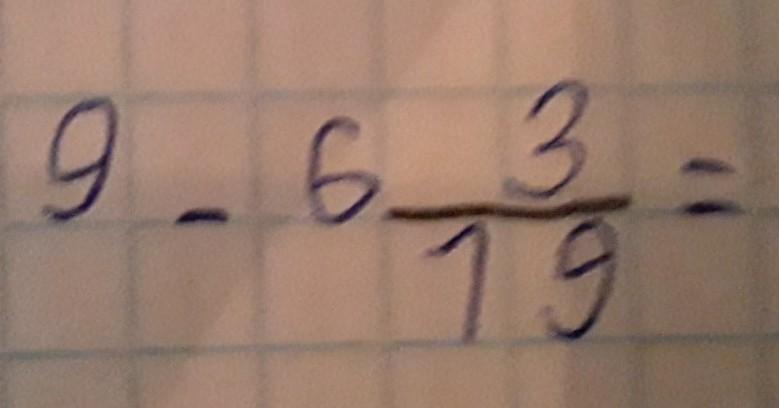 9 - 6 3/19 =